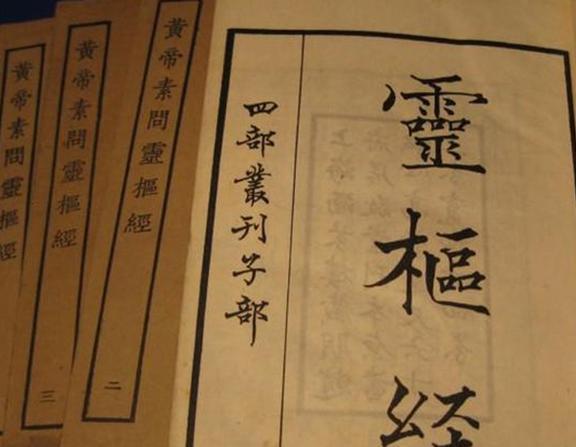 靈樞經
四部叢刊子部
黃帝素問靈樞經
二
黃帝素問靈樞經
三
黃帝素問靈樞經